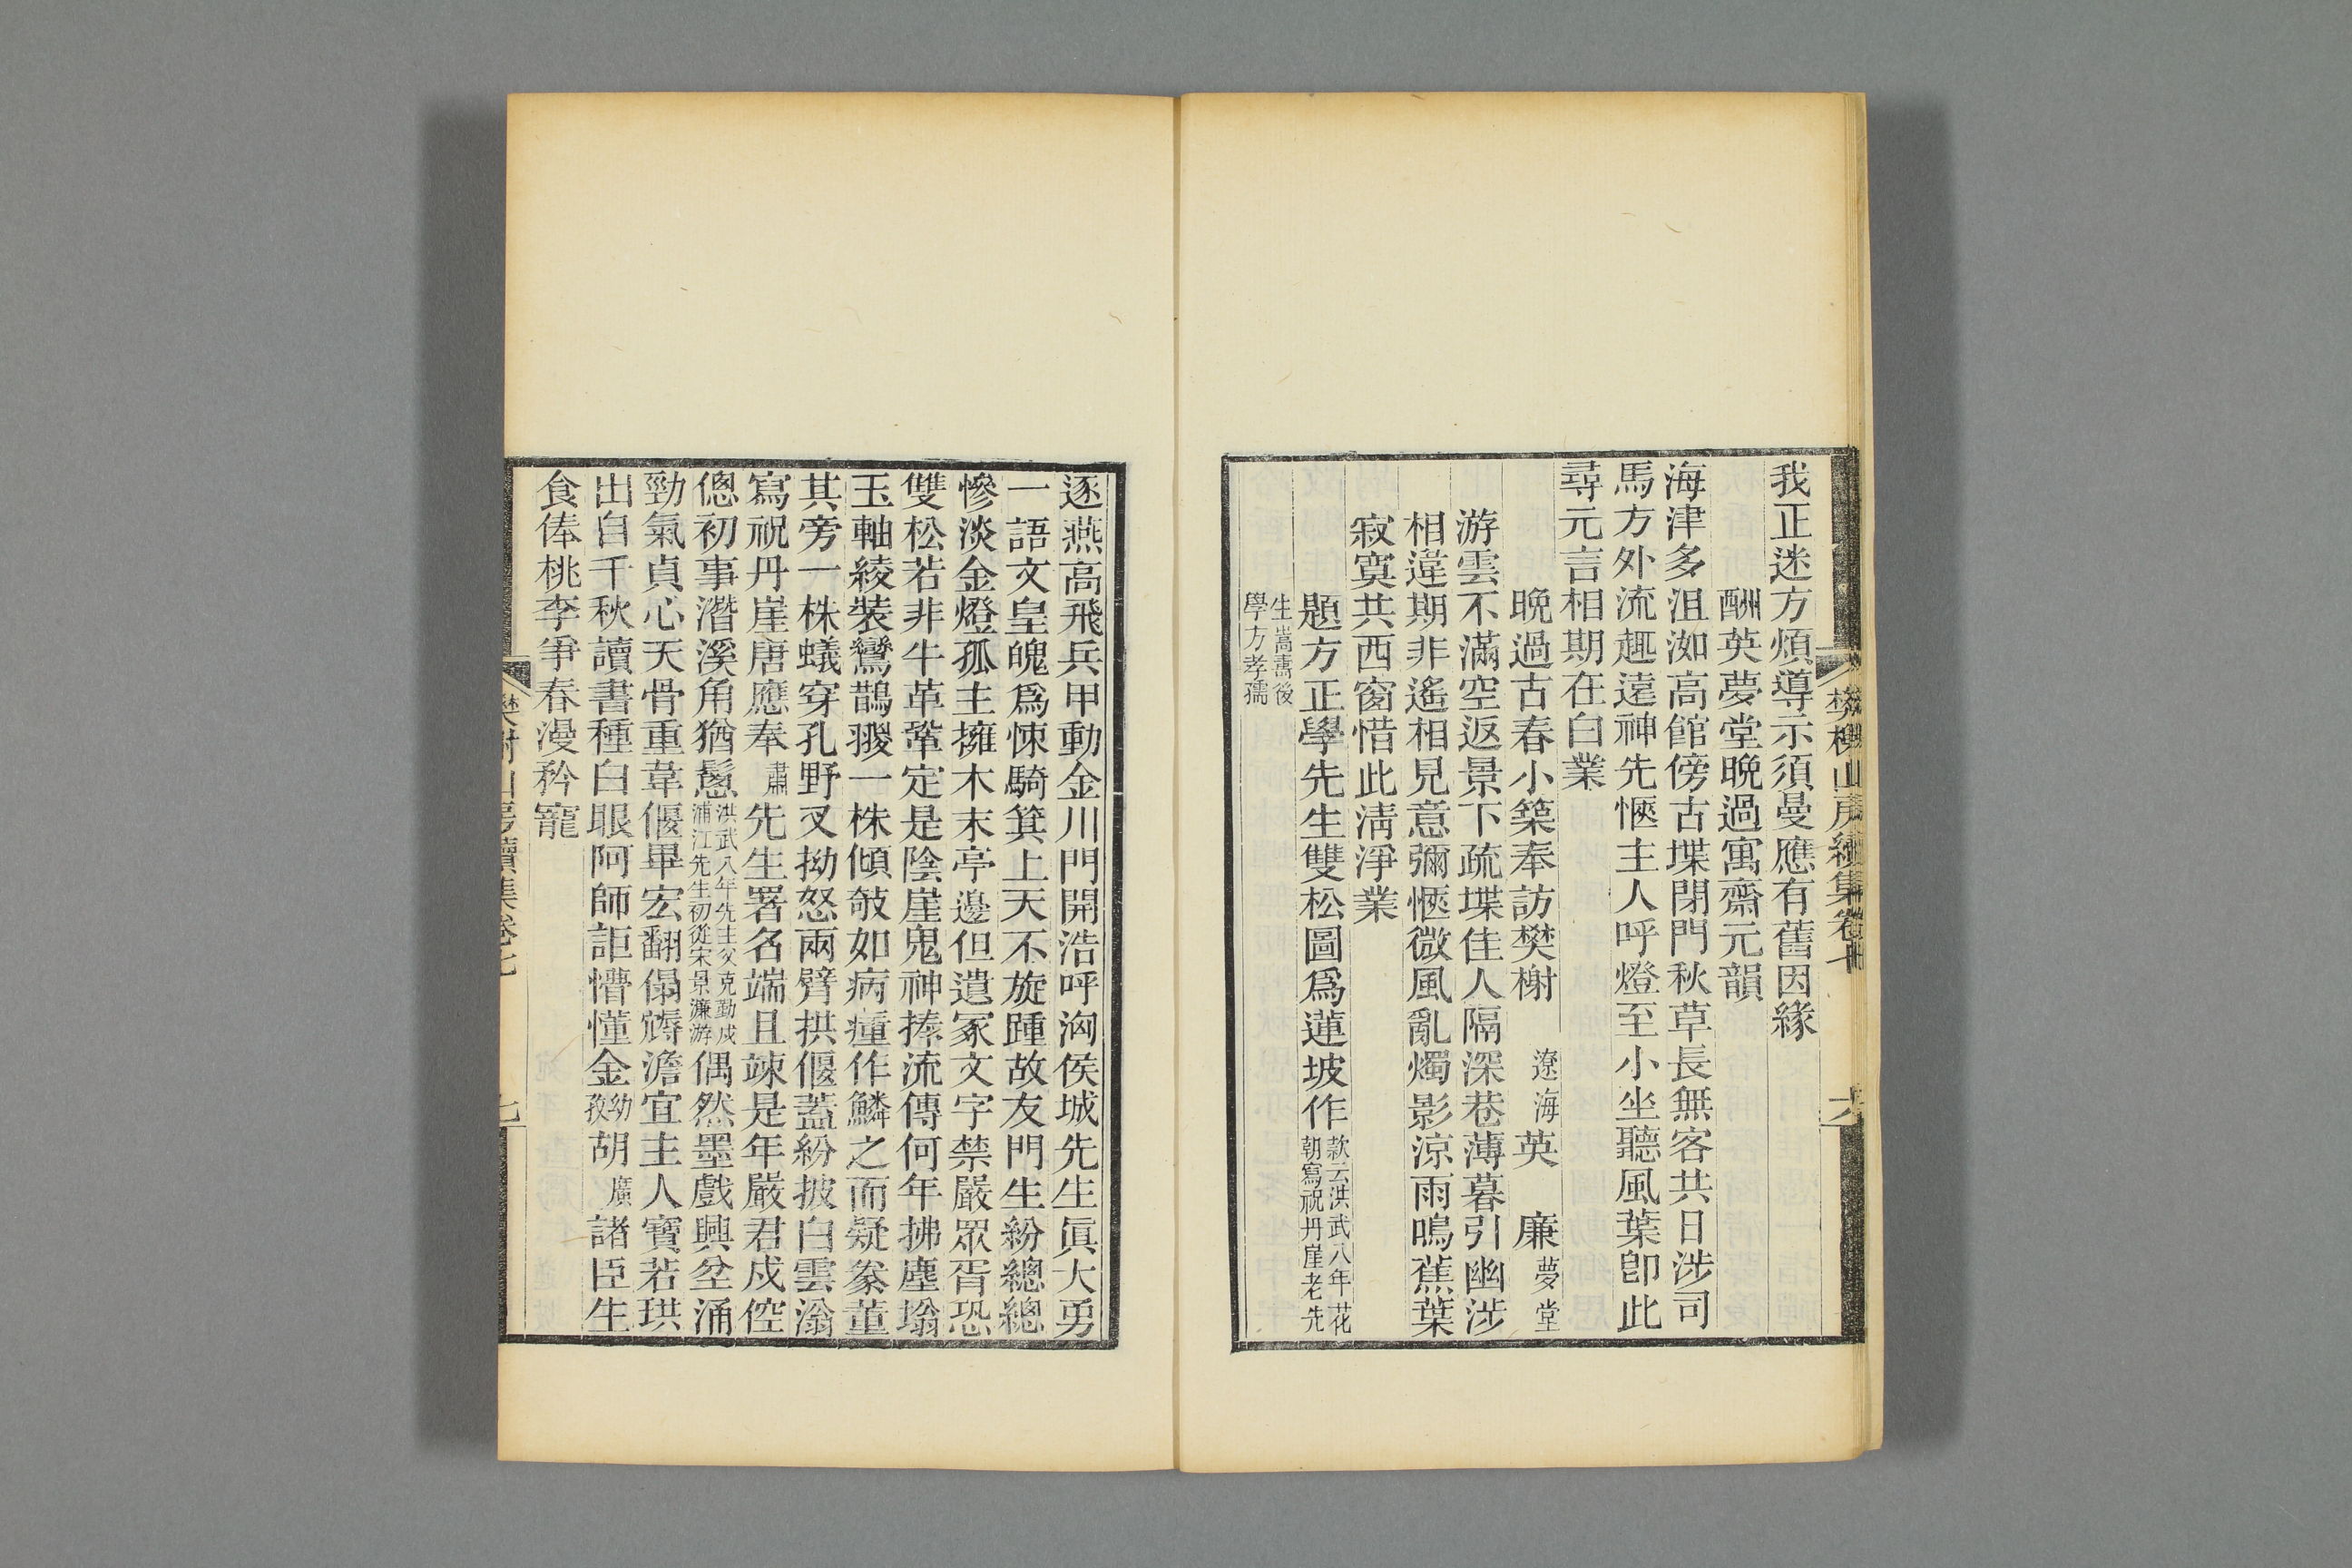 我正迷方煩導示須曼應有舊因緣
酬英夢堂晚過寓齋元韻
海津多沮洳高館傍古堞閉門秋草長無客共日涉司
馬方外流趣遠神先愜主人呼燈至小坐聽風葉卽此
尋元言相期在白業
晚過古春小築奉訪樊榭 遼海英 廉夢堂
游雲不滿空返景下疏堞佳人隔深巷薄暮引幽涉
相違期非遙相見意彌愜微風亂燭影涼雨鳴蕉葉
寂寞共西窗惜此清淨業
題方正學先生雙松圖爲蓮坡作款云洪武八年花
朝寫祝丹崖老先
生嵩壽後
學方孝孺
逐燕高飛兵甲動金川門開浩呼洶侯城先生眞大勇
一語文皇魄爲悚騎箕上天不旋踵故友門生紛總總
慘淡金燈孤主擁木末亭邊但遺冢文字禁嚴眾胥恐
雙松若非牛革鞏定是陰崖鬼神捧流傳何年拂塵塕
玉軸綾裝鸞鵲翪一株傾攲如病瘇作鱗之而疑豢董
其旁一株蟻穿孔野叉拗怒兩臂拱偃蓋紛披白雲滃
寫祝丹崖唐應奉肅先生署名端且竦是年嚴君戍倥
傯初事潛溪角猶鬉洪武八年先生父克勤戍
浦江先生初從宋景濂游偶然墨戲興坌涌
勁氣貞心天骨重韋偃畢宏翻傝㒇澹宜主人寶若珙
出自千秋讀書種白眼阿師詎懵懂金幼
孜胡廣諸臣生
食俸桃李爭春漫矜寵
樊榭山房續集卷七
七